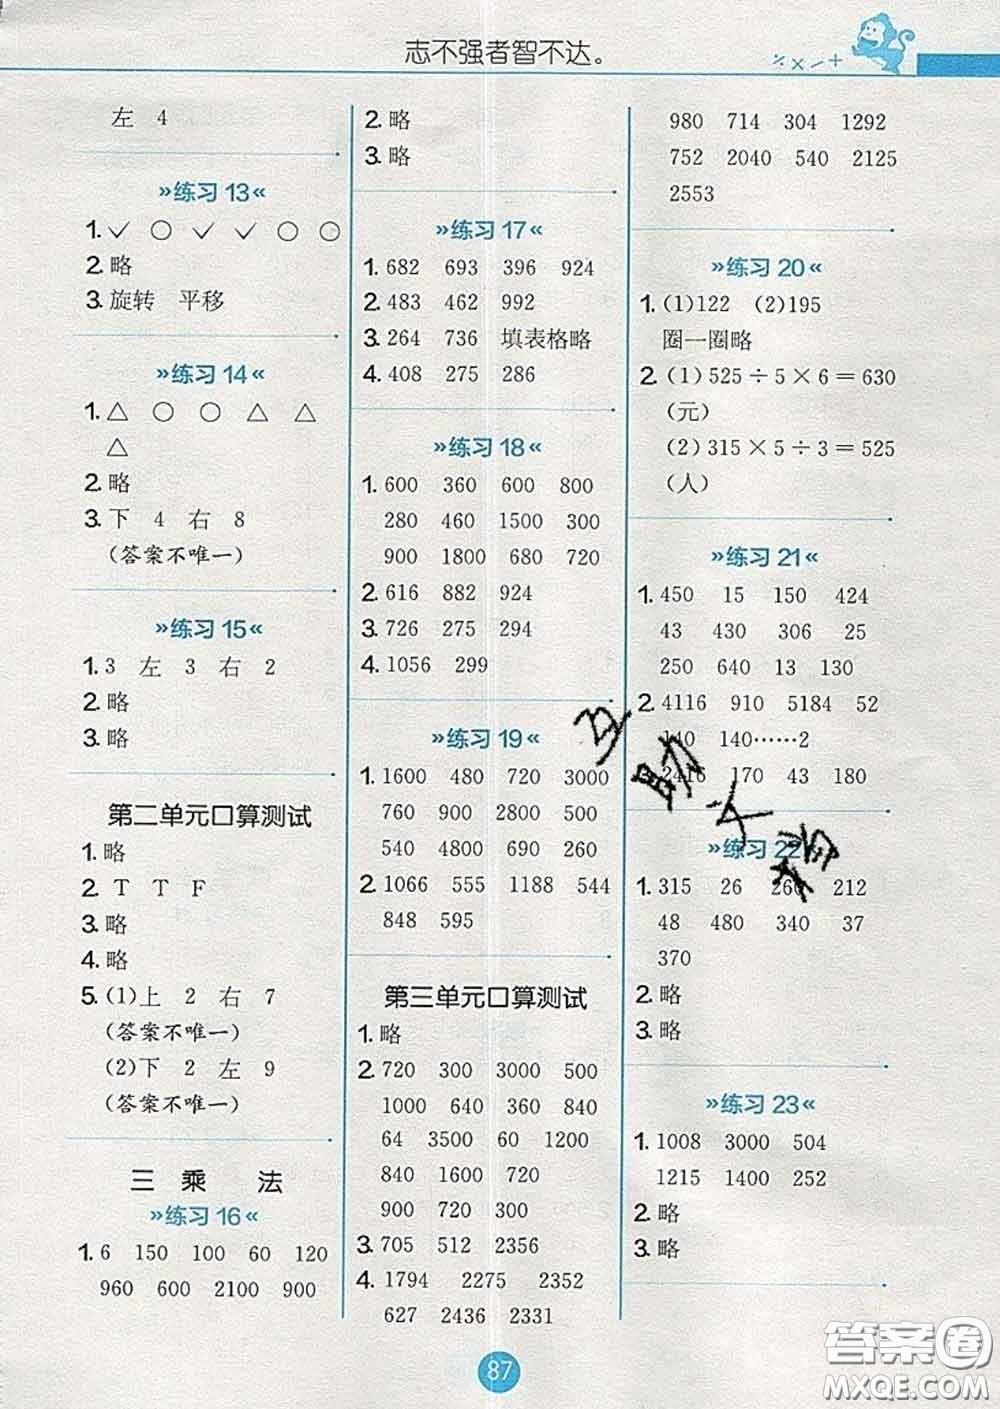 志不强者智不达。
÷ × − +
左 4
»练习 13«
1. ✓ ○ ✓ ✓ ○ ○
2. 略
3. 旋转 平移
»练习 14«
1. △ ○ ○ △ △
△
2. 略
3. 下 4 右 8
(答案不唯一)
»练习 15«
1. 3 左 3 右 2
2. 略
3. 略
第二单元口算测试
1. 略
2. T T F
3. 略
4. 略
5. (1)上 2 右 7
(答案不唯一)
(2)下 2 左 9
(答案不唯一)
三 乘 法
»练习 16«
1. 6 150 100 60 120
960 600 2100 900
2. 略
3. 略
»练习 17«
1. 682 693 396 924
2. 483 462 992
3. 264 736 填表格略
4. 408 275 286
»练习 18«
1. 600 360 600 800
280 460 1500 300
900 1800 680 720
2. 616 882 924
3. 726 275 294
4. 1056 299
»练习 19«
1. 1600 480 720 3000
760 900 2800 500
540 4800 690 260
2. 1066 555 1188 544
848 595
第三单元口算测试
1. 略
2. 720 300 3000 500
1000 640 360 840
64 3500 60 1200
840 1600 720
900 720 300
3. 705 512 2356
4. 1794 2275 2352
627 2436 2331
980 714 304 1292
752 2040 540 2125
2553
»练习 20«
1. (1)122 (2)195
圈一圈略
2. (1)525÷5×6=630
(元)
(2)315×5÷3=525
(人)
»练习 21«
1. 450 15 150 424
43 430 306 25
250 640 13 130
2. 4116 910 5184 52
140 140……2
3. 2416 170 43 180
»练习 22«
1. 315 26 260 212
48 480 340 37
370
2. 略
3. 略
»练习 23«
1. 1008 3000 504
1215 1400 252
2. 略
3. 略
87
答案圈
MXQE.COM